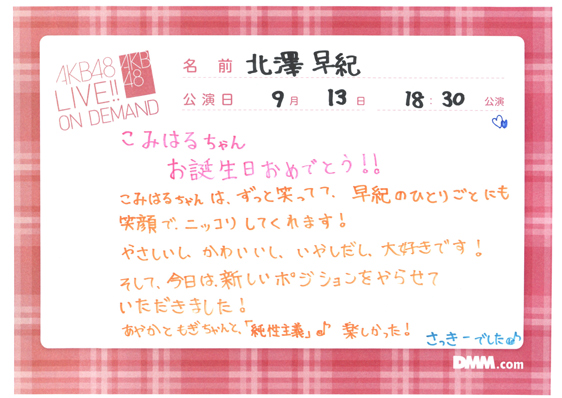 AKB48
LIVE!!
ON DEMAND
AKB
48
名前 北澤 早紀
公演日 9月 13日 18:30 公演
こみはるちゃん
お誕生日おめでとう!!
こみはるちゃんは、ずっと笑ってて、早紀のひとりごとにも
笑顔で、ニッコリしてくれます!
やさしいし、かわいいし、いやしだし、大好きです!
そして、今日は、新しいポジションをやらせて
いただきました!
あやかともぎちゃんと、「純性主義」♪ 楽しかった!
さっきーでした♪
DMM.com